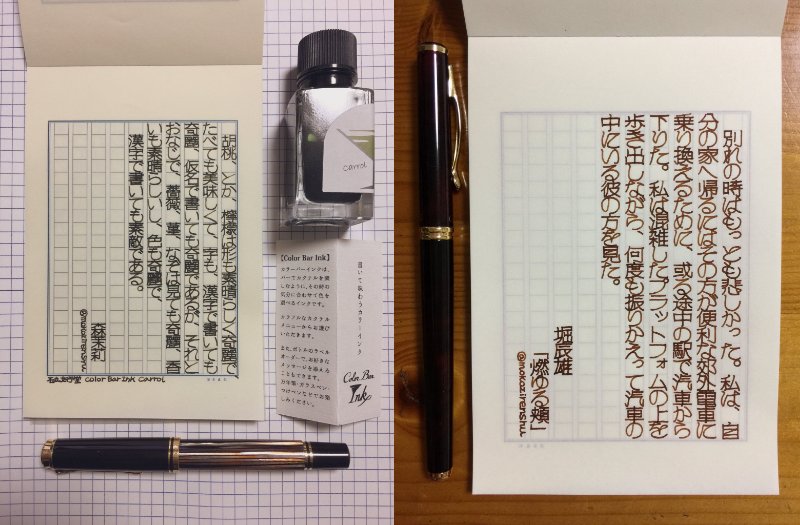 胡桃、とか、檸檬は形も素晴らしく奇麗で
たべても美味しくて、字も、漢字で書いても
奇麗、仮名で書いても奇麗であるが、それと
おなじで、薔薇、菫、なぞは見ても奇麗、香
いも素晴らしいし、色も奇麗で、
漢字で書いても素敵である。
森茉利
@mokazirenshu
石丸文行堂 Color Bar Ink Carrol
carrol
【Color Bar Ink】
カラーバーインクは、
バーでカクテルを楽し
むように、その時の
気分に合わせて色を
選べるインクです。
カラフルなカクテル
メニューからお選び
いただきます。
また、ボトルのラベル
オーダーで、お好きな
メッセージを添える
こともできます。
万年筆・ガラスペン・
つけペンなどでお愉
しみください。
書いて味わうカラーインク
Color Bar
Ink
別れの時はもっとも悲しかった。私は、自
分の家へ帰るにはその方が便利な郊外電車に
乗り換えるために、或る途中の駅で汽車から
下りた。私は混雑したプラットフォムの上を
歩き出しながら、何度も振りかえって汽車の
中にいる彼の方を見た。
堀辰雄
「燃ゆる頬」
@mokazirenshu